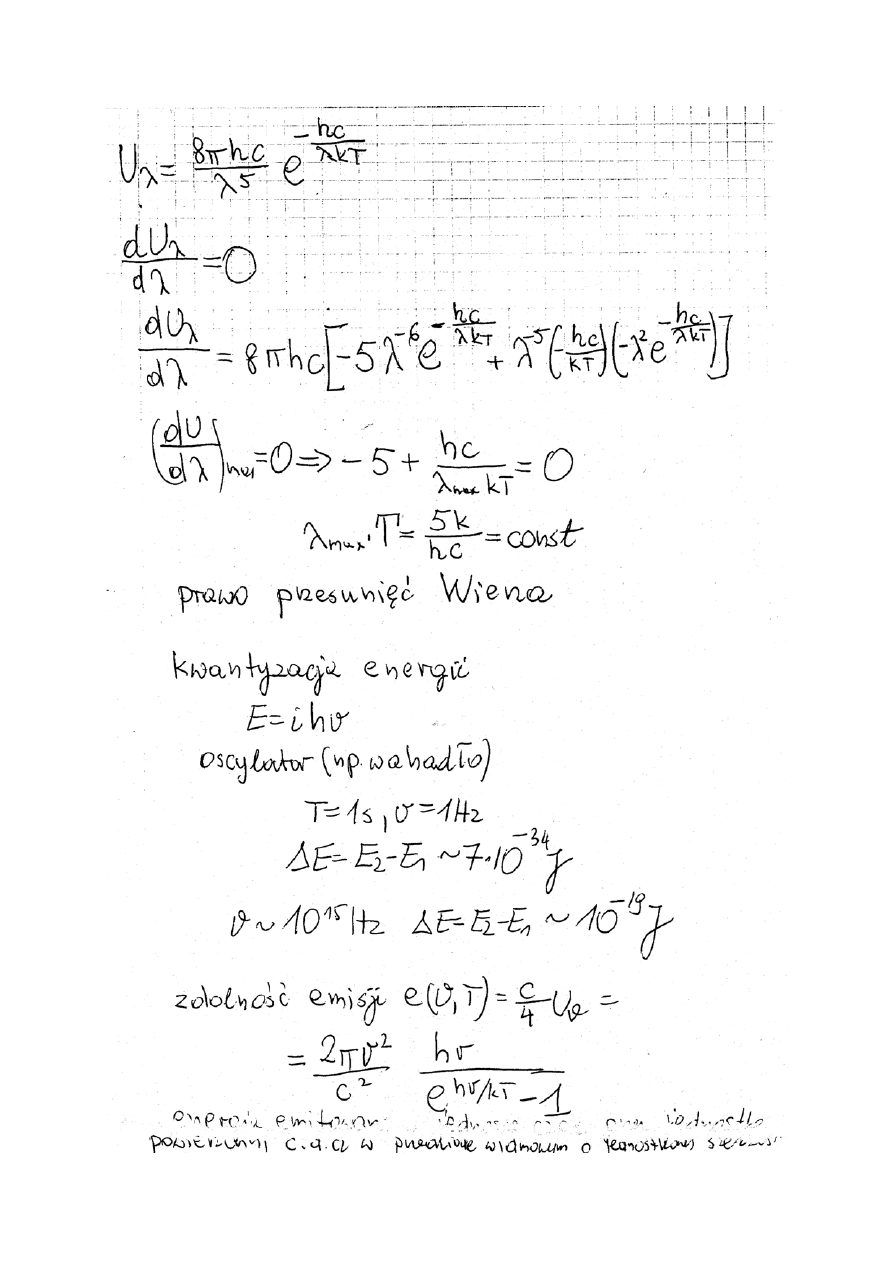 U_λ = 8πhc/λ^5 e^(-hc/λkT)
dU_λ/dλ = 0
dU_λ/dλ = 8πhc[-5λ^-6 e^(-hc/λkT) + λ^-5(-hc/kT)(-λ^-2 e^(-hc/λkT))]
(dU/dλ)max = 0 ⇒ -5 + hc/(λmax kT) = 0
λmax·T = 5k/hc = const
prawo przesunięć Wiena
kwantyzacja energii
E=ihν
oscylator (np. wahadło)
T=1s, ν=1Hz
ΔE=E₂-E₁ ~7·10^-34 J
ν~10^15 Hz ΔE=E₂-E₁ ~10^-19 J
zdolność emisji e(ν,T) = c/4 U_ν =
= 2πν²/c² hν/(e^(hν/kT) - 1)
powierzchni c.d.cz w przedziale widmowym o jednostkowej